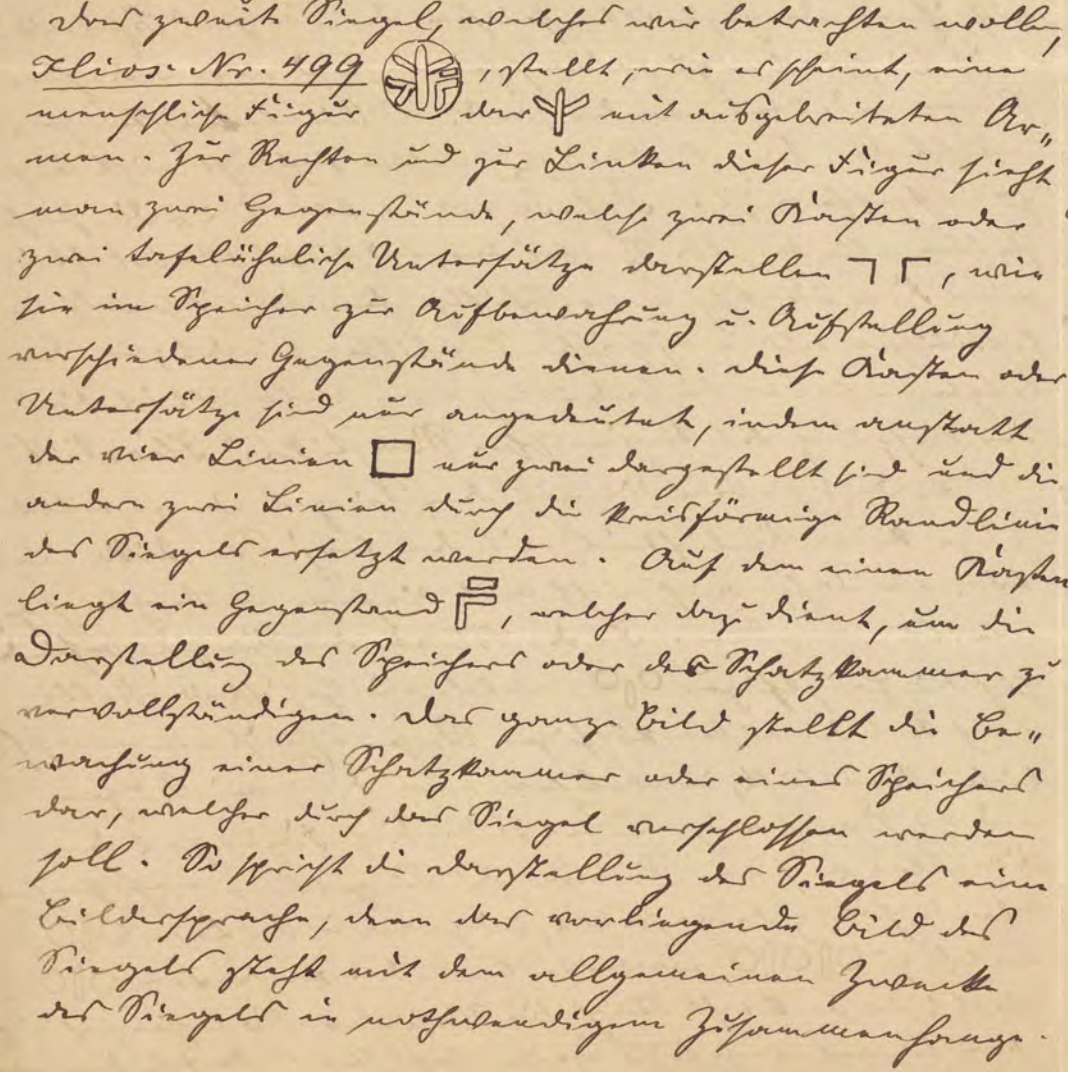 Das zweite Siegel, welches wir betrachten wollen,
Ilios Nr. 499, stellt, wie es scheint, eine
menschliche Figur dar mit ausgebreiteten Ar„
men. Zur Rechten und zur Linken dieser Figur sieht
man zwei Gegenstände, welche zwei Kasten oder
zwei tafelähnliche Untersätze darstellen, wie
sie im Speicher zur Aufbewahrung u. Aufstellung
verschiedener Gegenstände dienen. Diese Kasten oder
Untersätze sind nur angedeutet, indem anstatt
der vier Linien nur zwei dargestellt sind und die
andern zwei Linien durch die kreisförmige Randlinie
des Siegels ersetzt werden. Auf dem einen Kasten
liegt ein Gegenstand, welcher dazu dient, um die
Darstellung des Speichers oder der Schatzkammer zu
vervollständigen. Das ganze Bild stellt die Be„
wachung einer Schatzkammer oder eines Speichers
dar, welcher durch das Siegel verschlossen werden
soll. So spricht die Darstellung des Siegels eine
Bildersprache, denn das vorliegende Bild des
Siegels steht mit dem allgemeinen Zwecke
des Siegels in nothwendigem Zusammenhange.